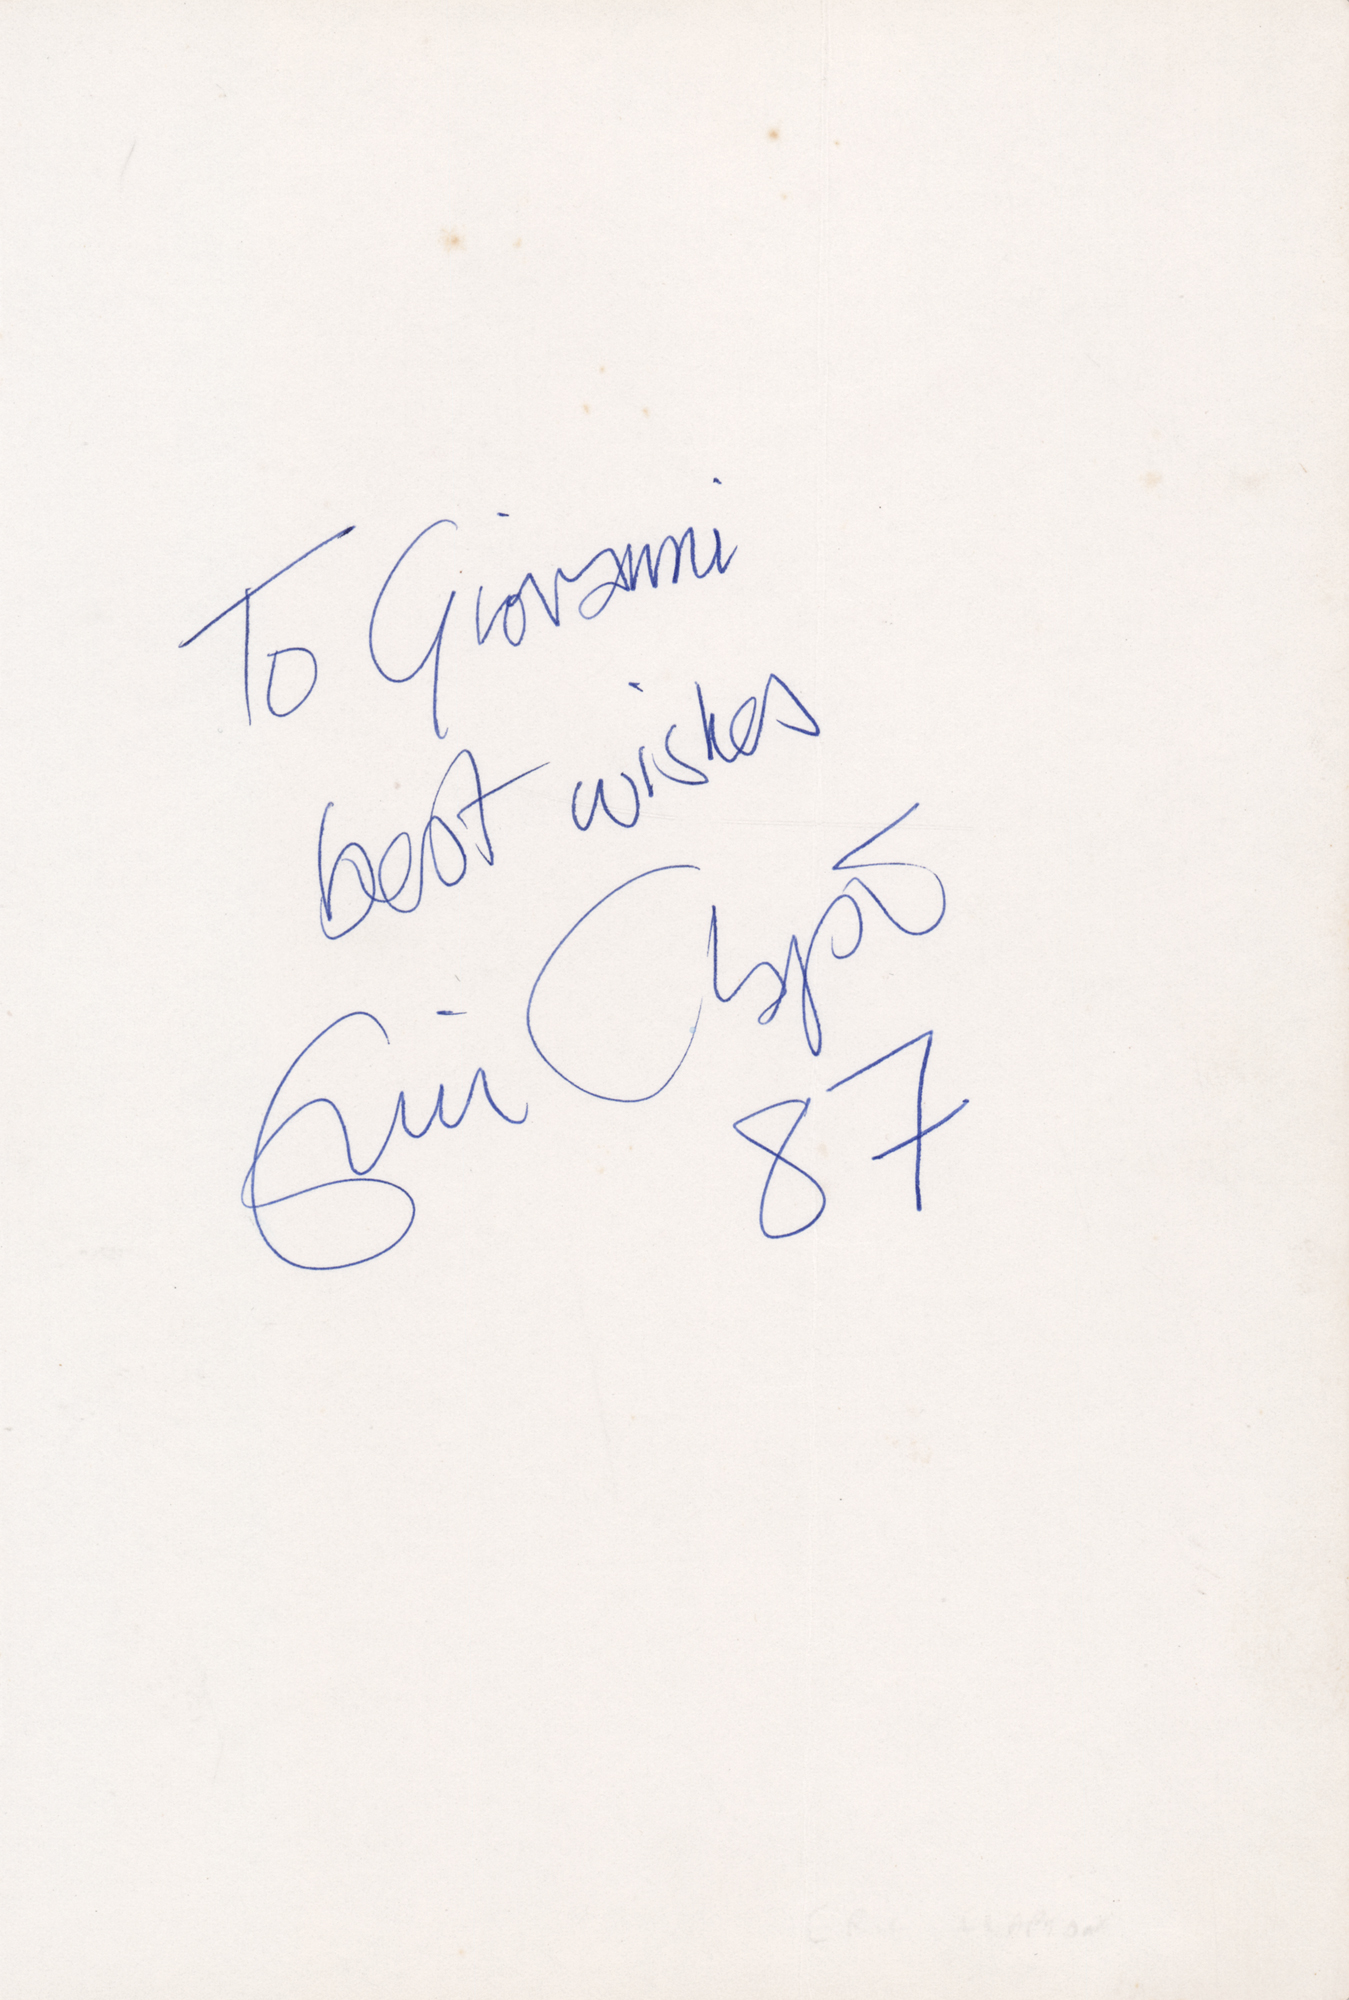 To Giovanni
best wishes
Eric Clapton
87
ERIC CLAPTON